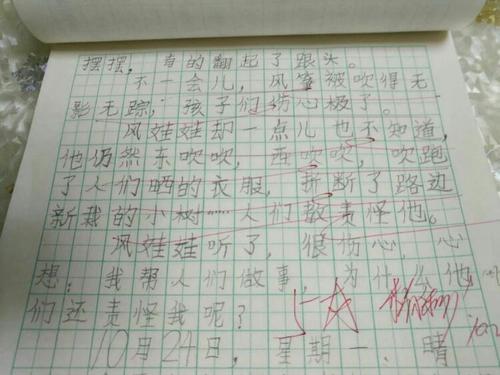 摆摆，有的翻起了跟头。
不一会儿，风筝被吹得无
影无踪，孩子们伤心极了。
风娃娃却一点儿也不知道，
他仍然东吹吹，西吹吹，吹跑
了人们晒的衣服，折断了路边
新栽的小树……人们都责怪他。
风娃娃听了，很伤心，心
想：我帮人们做事，为什么他
们还责怪我呢？
10月24日，星期一，晴